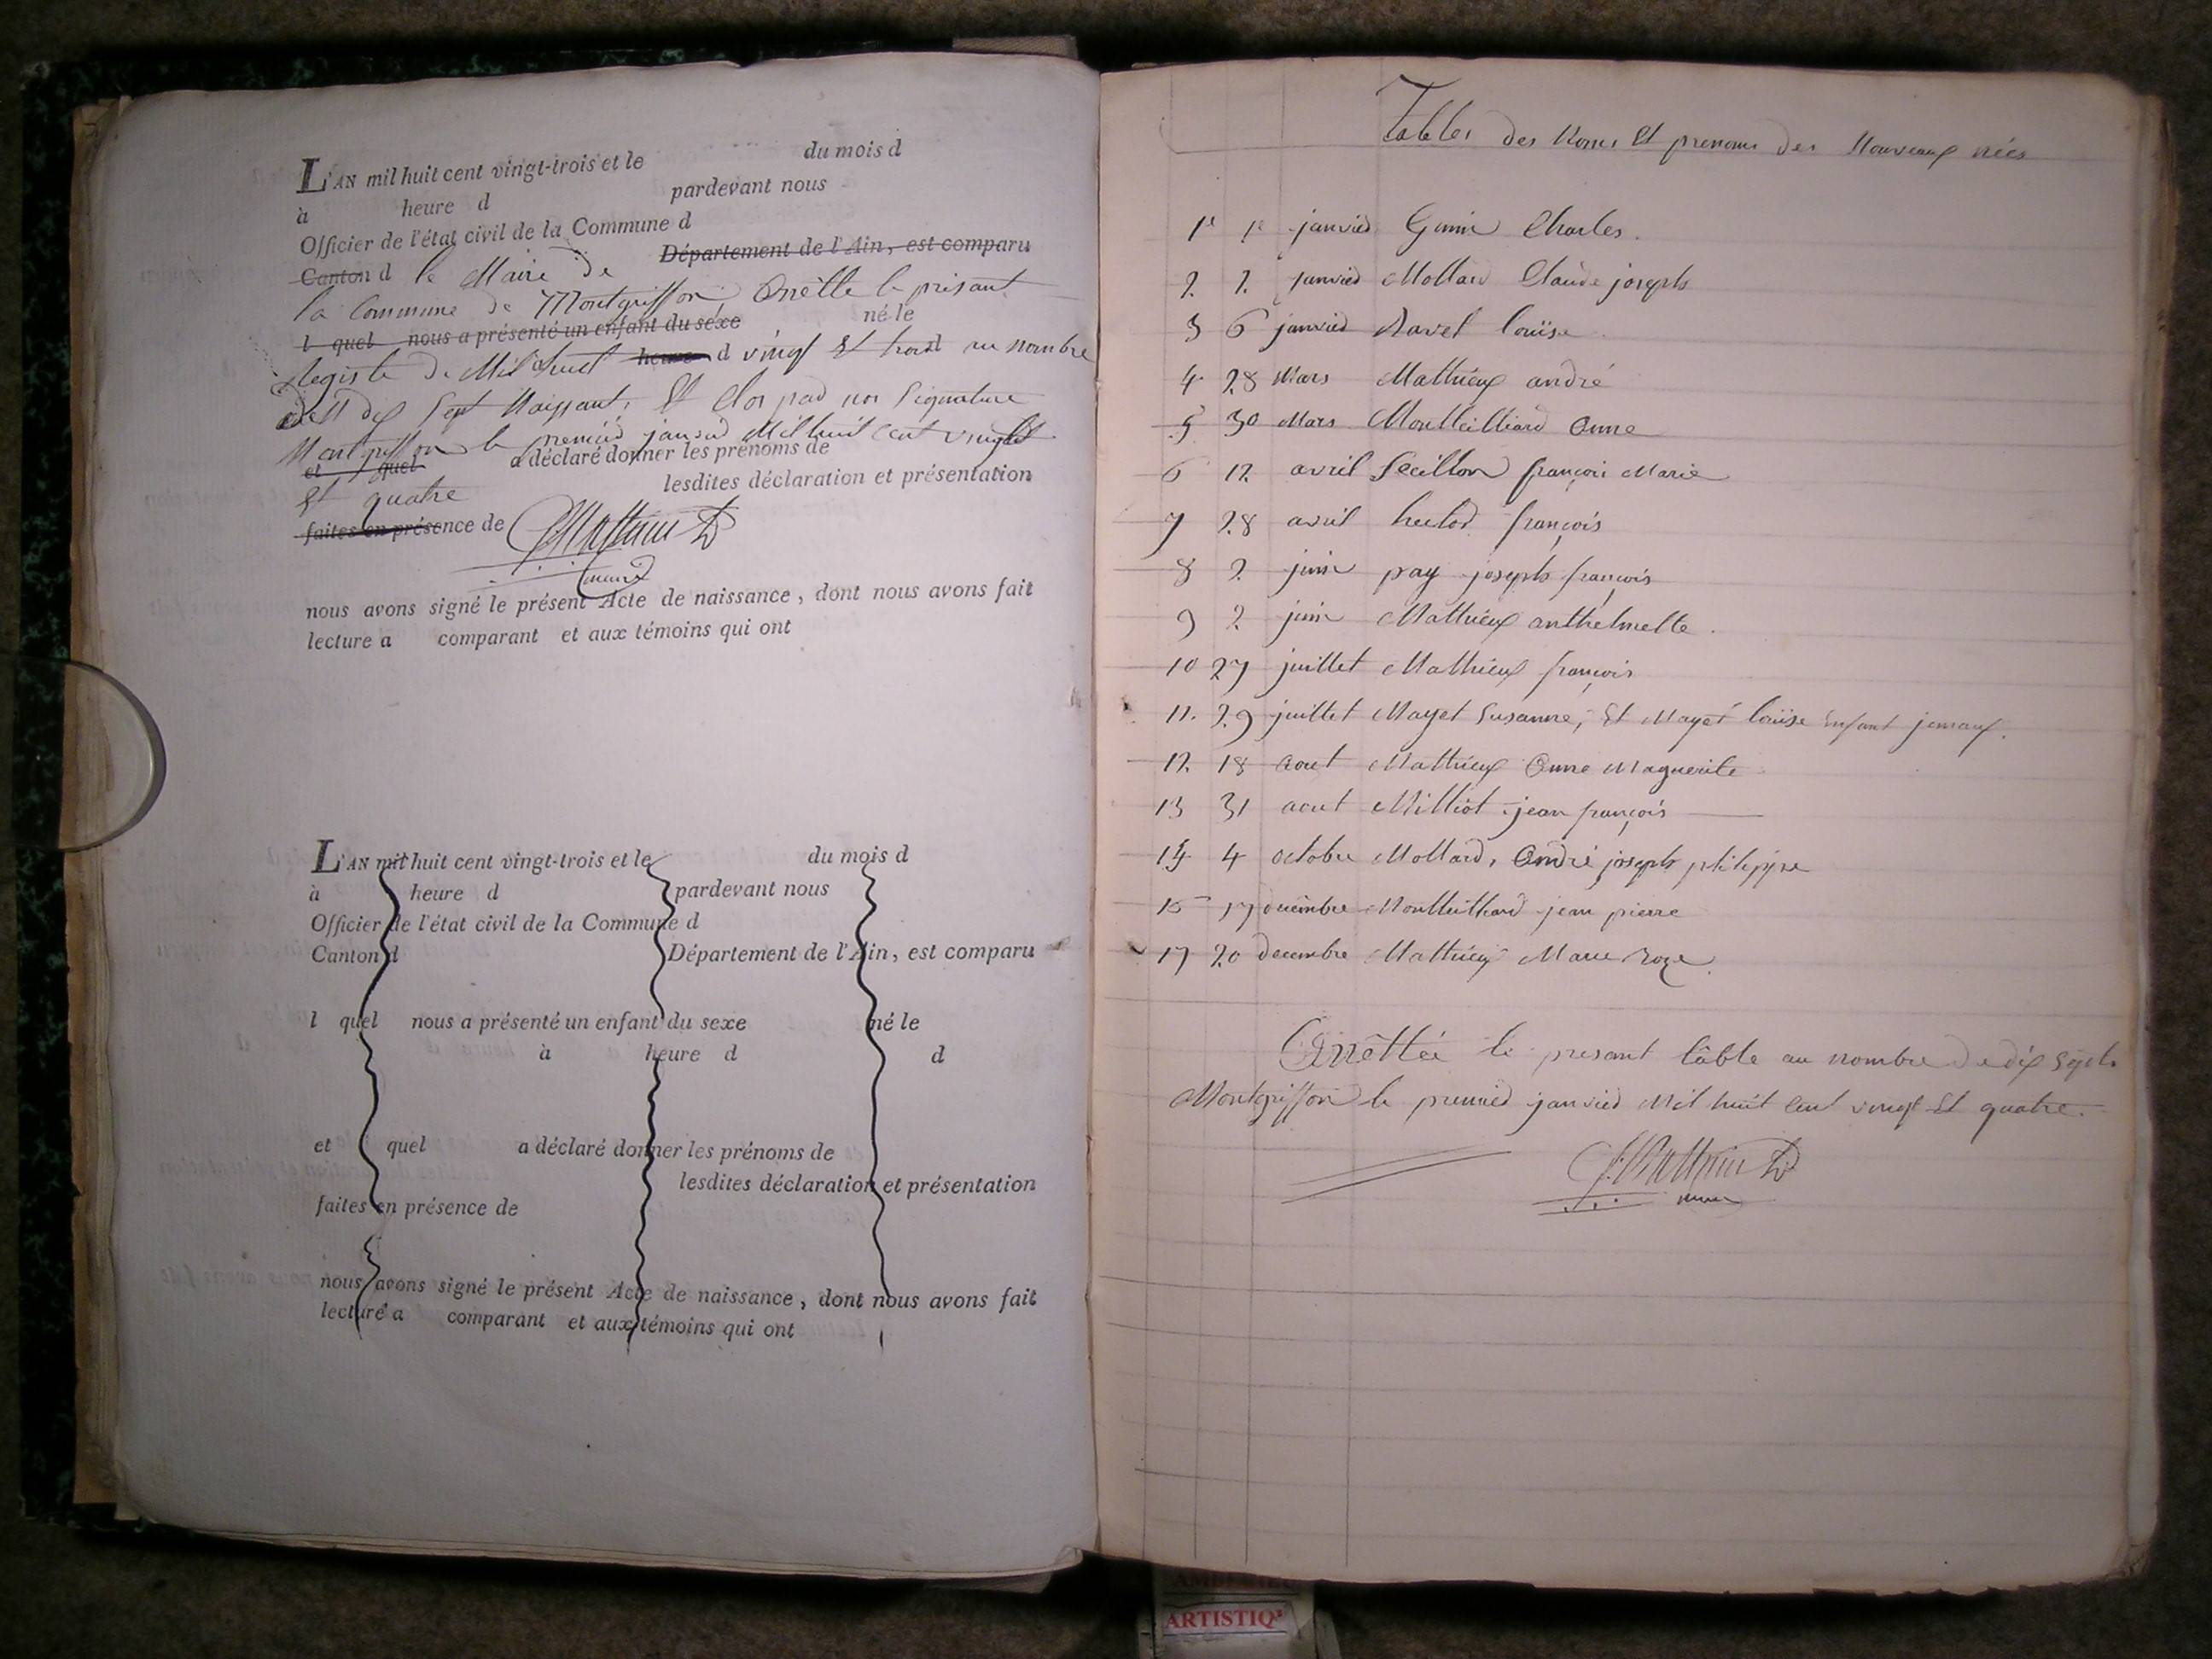 L'AN mil huit cent vingt-trois et le du mois d
à heure d pardevant nous
Officier de l'état civil de la Commune d
Canton d le Maire de Département de l'Ain, est comparu
la Commune de Montgriffon, Arrêtte le présant
l quel nous a présenté un enfant du sexe né le
Registe de Mil huit heure d vingt Et trois au nombre
de dix Sept Naissant, Et Clos par nor Signature
Montgriffon le premier janvier Mil huit Cent vingt
et quel a déclaré donner les prénoms de
Et quatre lesdites déclaration et présentation
faites en présence de
maire
nous avons signé le présent Acte de naissance, dont nous avons fait
lecture a comparant et aux témoins qui ont
L'AN mil huit cent vingt-trois et le du mois d
à heure d pardevant nous
Officier de l'état civil de la Commune d
Canton d Département de l'Ain, est comparu
l quel nous a présenté un enfant du sexe né le
à heure d d
et quel a déclaré donner les prénoms de
lesdites déclaration et présentation
faites en présence de
nous avons signé le présent Acte de naissance, dont nous avons fait
lecture a comparant et aux témoins qui ont
Tables des Noms Et prenoms des Nouveaux nées
1e 1e janvier Charles.
2 2 janvier Mollard Claude joseph
3 6 janvier Ravet louïse
4 28 Mars Mathieux andré
5 30 Mars Montteilliard Anne
6 12 avril françois Marie
7 28 avril françois
8 2 juin pay joseph françois
9 2 juin Mathieux anthelmette.
10 27 juillet Mathieux françois
11. 29 juillet Mayet Susanne, Et Mayet louïse Enfant jemaux.
12. 18 aout Mathieux Anne Maguerite
13 31 aout Milliot jean françois
14 4 octobre Mollard, André joseph philippe
15 17 Montteilliard jean pierre
17 20 decembre Mathieux Marie Roze.
Arrêttée le presant tâble au nombre de dix Sept
Montgriffon le premier janvier Mil huit Cent vingt Et quatre.
maire
ARTISTIQ